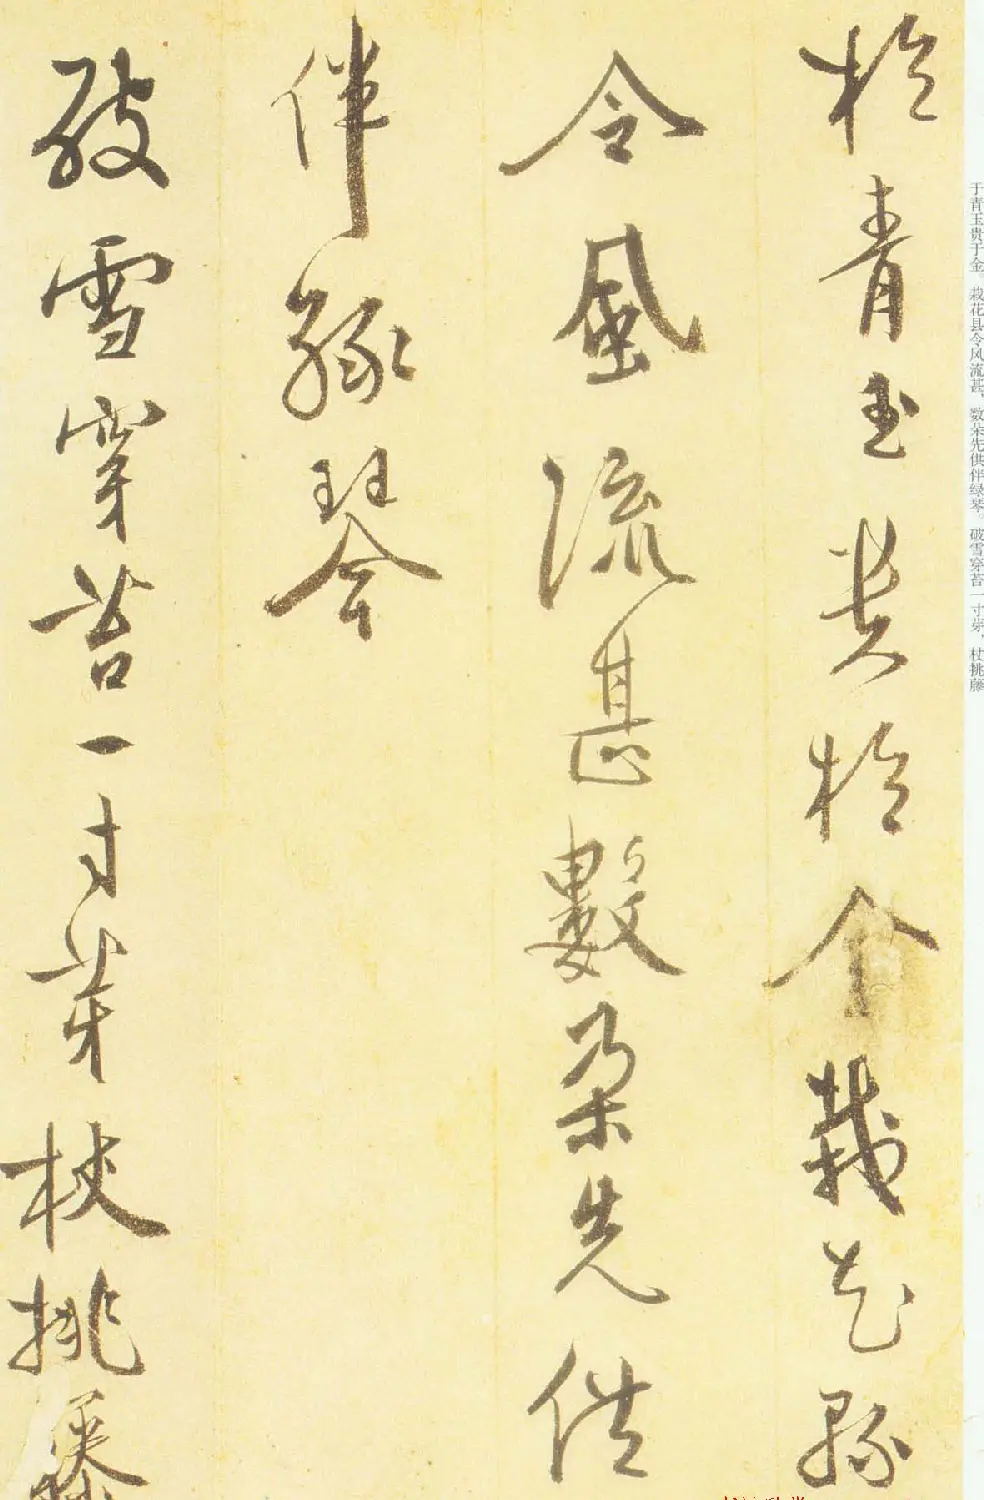 於青玉貴於金栽花縣
令風流甚數朵先供
伴綠琴
破雪穿苔一寸芽杖挑藤
于青玉贵于金。栽花县令风流甚，数朵先供伴绿琴。破雪穿苔一寸芽，杖挑藤